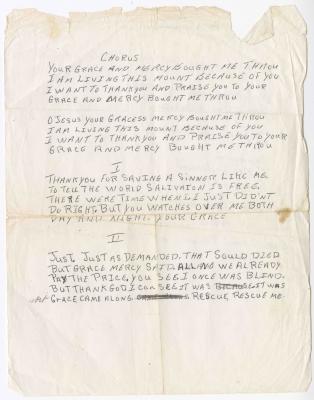 CHORUS
YOUR GRACE AND MERCY BOUGHT ME THROU
I AM LIVING THIS MOUNT BECAUSE OF YOU
I WANT TO THANK YOU AND PRAISE YOU TO YOUR
GRACE AND MERCY BOUGHT ME THROU
O JESUS YOUR GRACESS MERCY BOUGHT ME THROU
IAM LIVING THIS MOUNT BECAUSE OF YOU
I WANT TO THANK YOU AND PRAISE YOU TO YOUR
GRACE AND MERCY BOUGHT ME THROU
I
THANK YOU FOR SAVING A SINNER LIKE ME
TO TELL THE WORLD SALIVAION IS FREE.
THERE WERE TIME WHEN I JUST DIDN'T
DO RIGHT. BUT YOU WATCHES OVER ME BOTH
DAY AND NIGHT. YOUR GRACE
II
JUST JUST AS DEMANDED. THAT SOULD DIED
BUT GRACE MERCY SAID. WE ALREADY
PAY THE PRICE, YOU SEE I ONCE WAS BLIND.
BUT THANK GOD I CAN SEE IT WAS BECAUSE IT WAS
GRACE CAME ALONG. RESCUE, RESCUE ME.